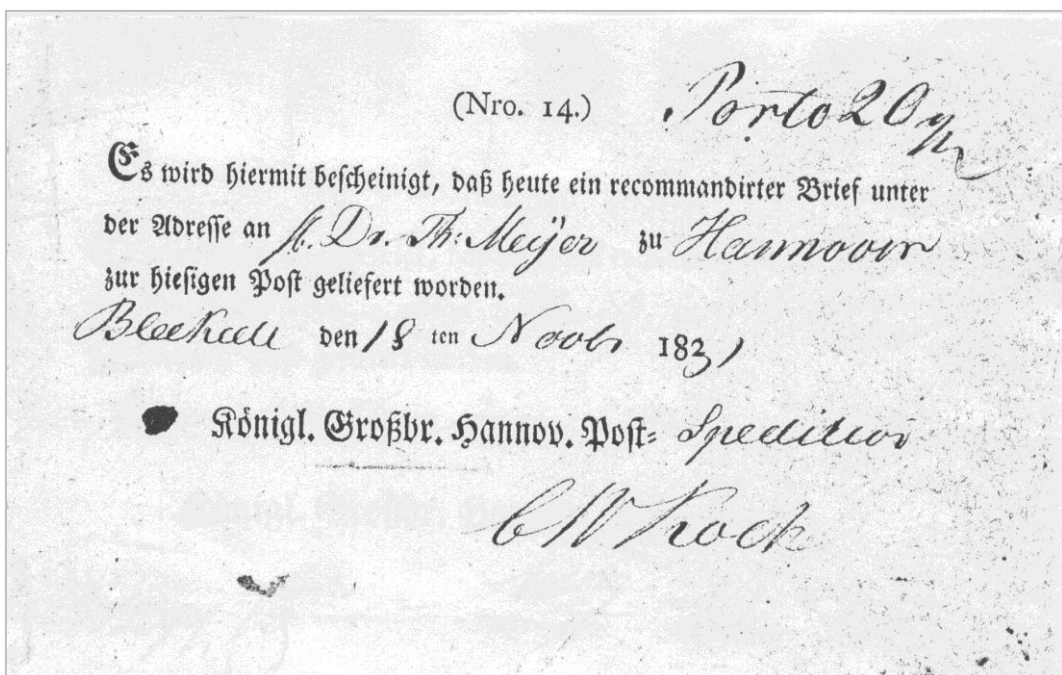 (Nro. 14.) Porto 2 Ggr
Es wird hiermit bescheinigt, daß heute ein recommandirter Brief unter
der Adresse an H. Dr. Th: Meÿer zu Hannover
zur hiesigen Post geliefert worden.
Bleckede den 18 ten Novbr 1831
Königl. Großbr. Hannov. Post- Spedition
C W Koch